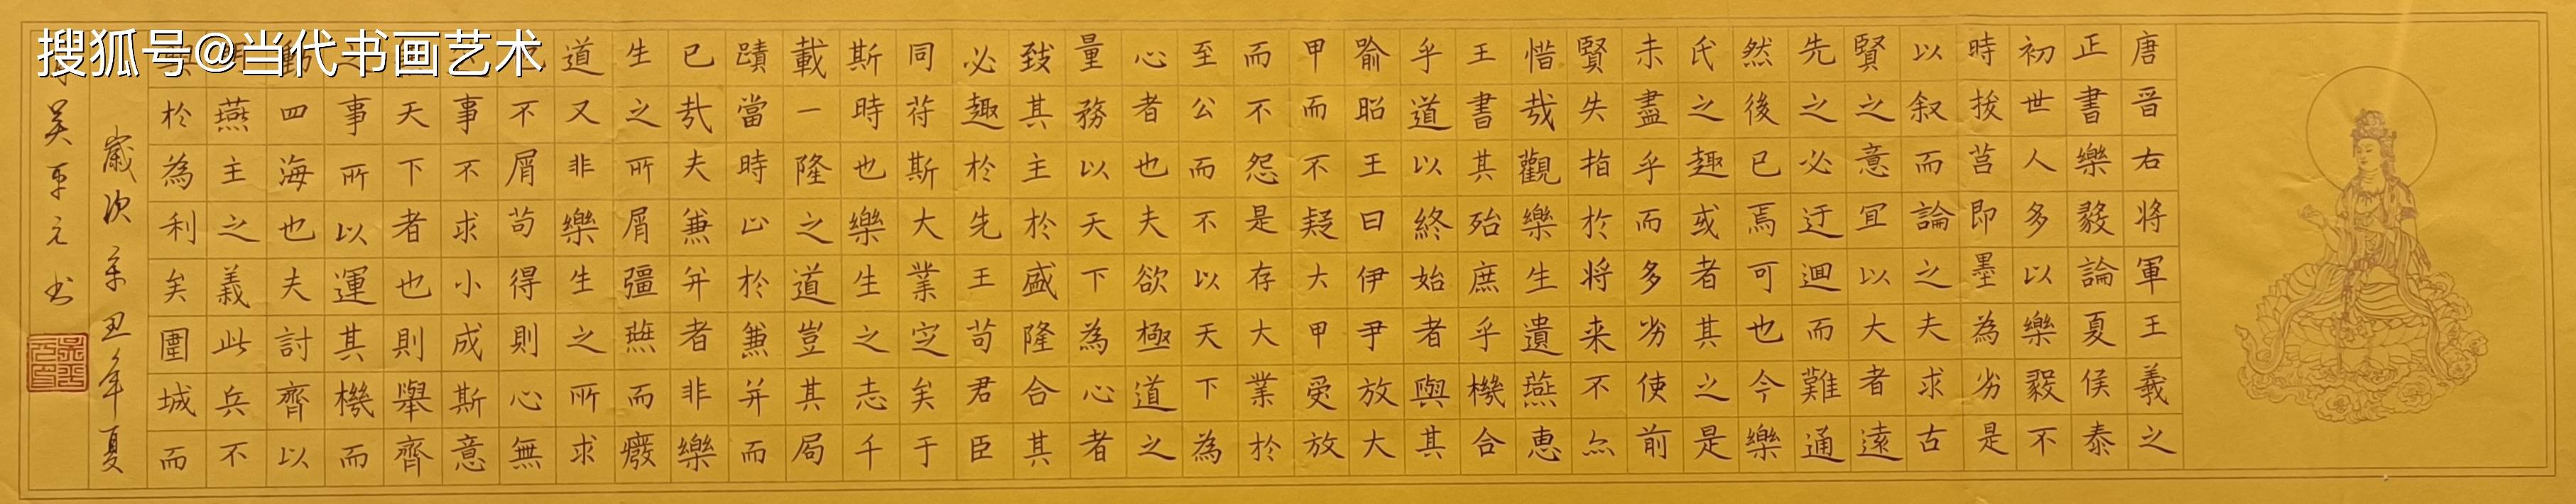 搜狐号@当代书画艺术
唐晋右将軍王義之
正書樂毅論夏侯泰
初世人多以樂毅不
時拔莒即墨為劣是
以叙而論之夫求古
賢之意宜以大者遠
先之必迂迴而難通
然後已焉可也今樂
氏之趣或者其之是
未盡乎而多劣使前
賢失指於将来不亦
惜哉觀樂生遺燕惠
王書其殆庶乎機合
乎道以終始者與其
喻昭王曰伊尹放大
甲而不疑大甲受放
而不怨是存大業於
至公而不以天下為
心者也夫欲極道之
量務以天下為心者
致其主於盛隆合其
必趣於先王苟君臣
同符斯大業定矣于
斯時也樂生之志千
載一隆之道豈其局
蹟當時止於兼并而
已哉夫兼并者非樂
生之所屑彊燕而廢
道又非樂生之所求
不屑苟得則心無
事不求小成斯意
天下者也則舉齊
之事所以運其機而
動四海也夫討齊以
燕主之義此兵不
於為利矣圍城而
歲次辛丑年夏
吴平元书